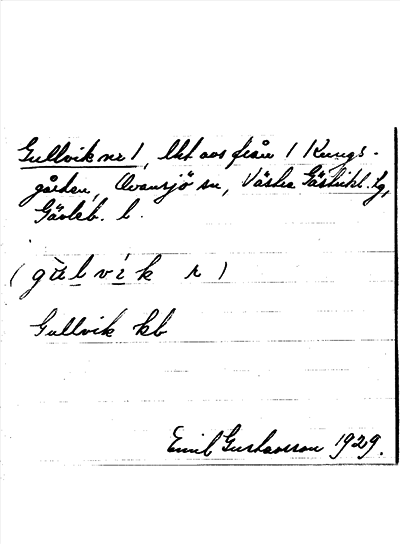 Gullvik nr 1, lht avs från 1 Kungs-
gården, Ovansjö sn, Västra Gästrikl. tg,
Gävleb. l.
(gu̇lvik r)
Gullvik kb
Emil Gustavsson 1929.